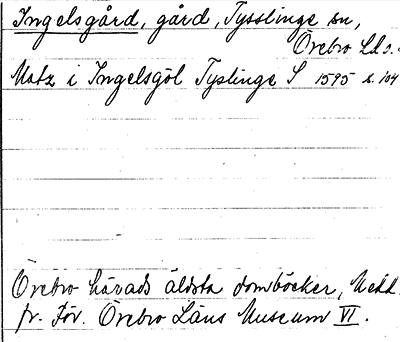 Ingelsgård, gård, Tysslinge sn,
Örebro Ll.
Matz i Ingelsgöl Tyslinge S 1595 s. 104
Örebro härads äldsta domböcker, Medd.
fr. För. Örebro Läns Museum VI.